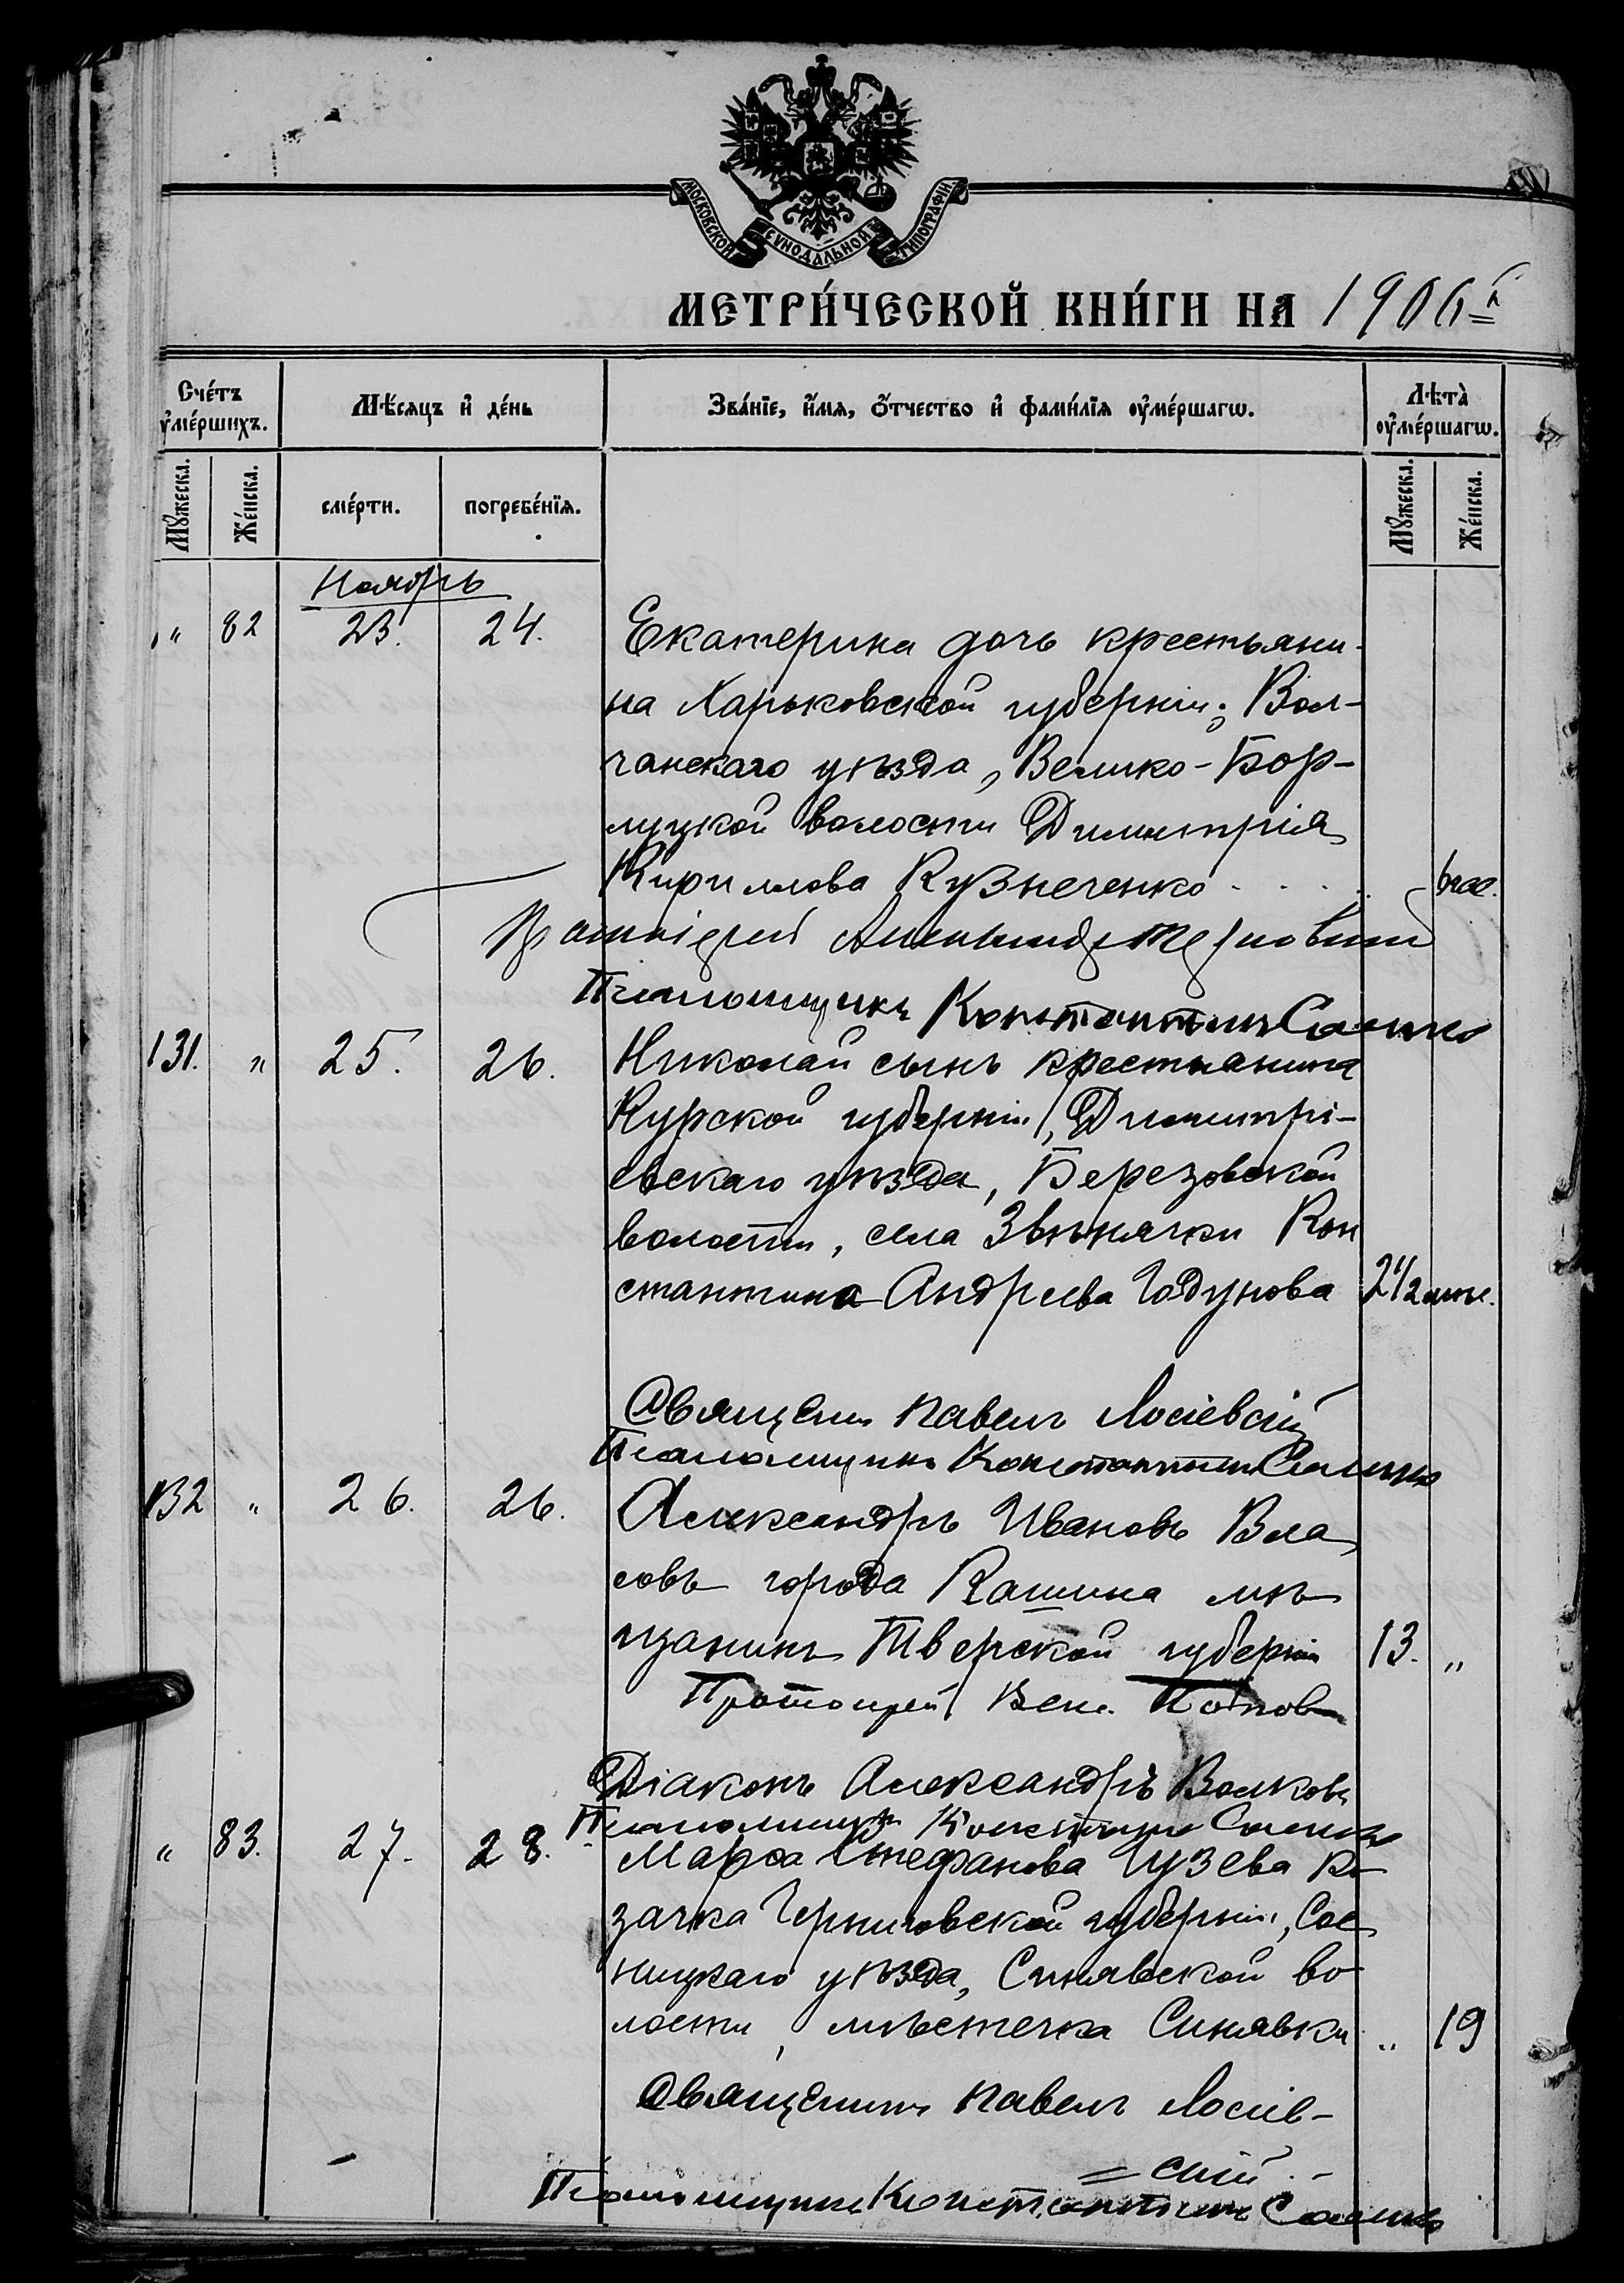 МОСКОВСКОЙ СѴНОДАЛЬНОЙ ТИПОГРАФІИ
МЕТРИ́ЧЕСКОЙ КНИ́ГИ НА 1906 г
Сче́тъ ᲂу҆ме́ршихъ.
Мѣ́сяцъ и҆ де́нь
Зва́нїе, и҆́мѧ, ѻ҆́тчество и҆ фами́лїѧ ᲂу҆ме́ршагѡ.
Лѣта̀ ᲂу҆ме́ршагѡ.
Мꙋ́жеска.
Же́нска.
сме́рти.
погребе́нїѧ.
Мꙋ́жеска.
Же́нска.
Ноябрь
" 82 23. 24. Екатерина дочь крестьяни-
на Харьковской губерніи, Вол-
чанскаго уѣзда, Велико-Бор-
луцкой волости Димитрія
Кириллова Кузнеченко
Протоіерей
Псаломщикъ Константинъ
131. " 25. 26. Николай сынъ крестьянина
Курской губерніи, Димитрі-
евскаго уѣзда, Березовской
волости, села Звѣнячки Кон
стантина Андреева Годунова 2 1/2 мѣс.
Священ. Павелъ Лосіевскій
Псаломщикъ Константинъ
132 " 26. 26. Александръ Ивановъ Вла
совъ города Кашина мѣ
щанинъ Тверской губерніи 13. "
Протоіерей Вен. Попов
Діаконъ Александръ Волковъ
Псаломщикъ Константинъ
" 83. 27. 28. Марфа Стефанова Гузева ка
зачка Черниговской губерніи, Сос
ницкаго уѣзда, Синявской во
лости, мѣстечка Синявки " 19
Священникъ Павелъ Лосіев-
= скій
Псаломщикъ Константинъ